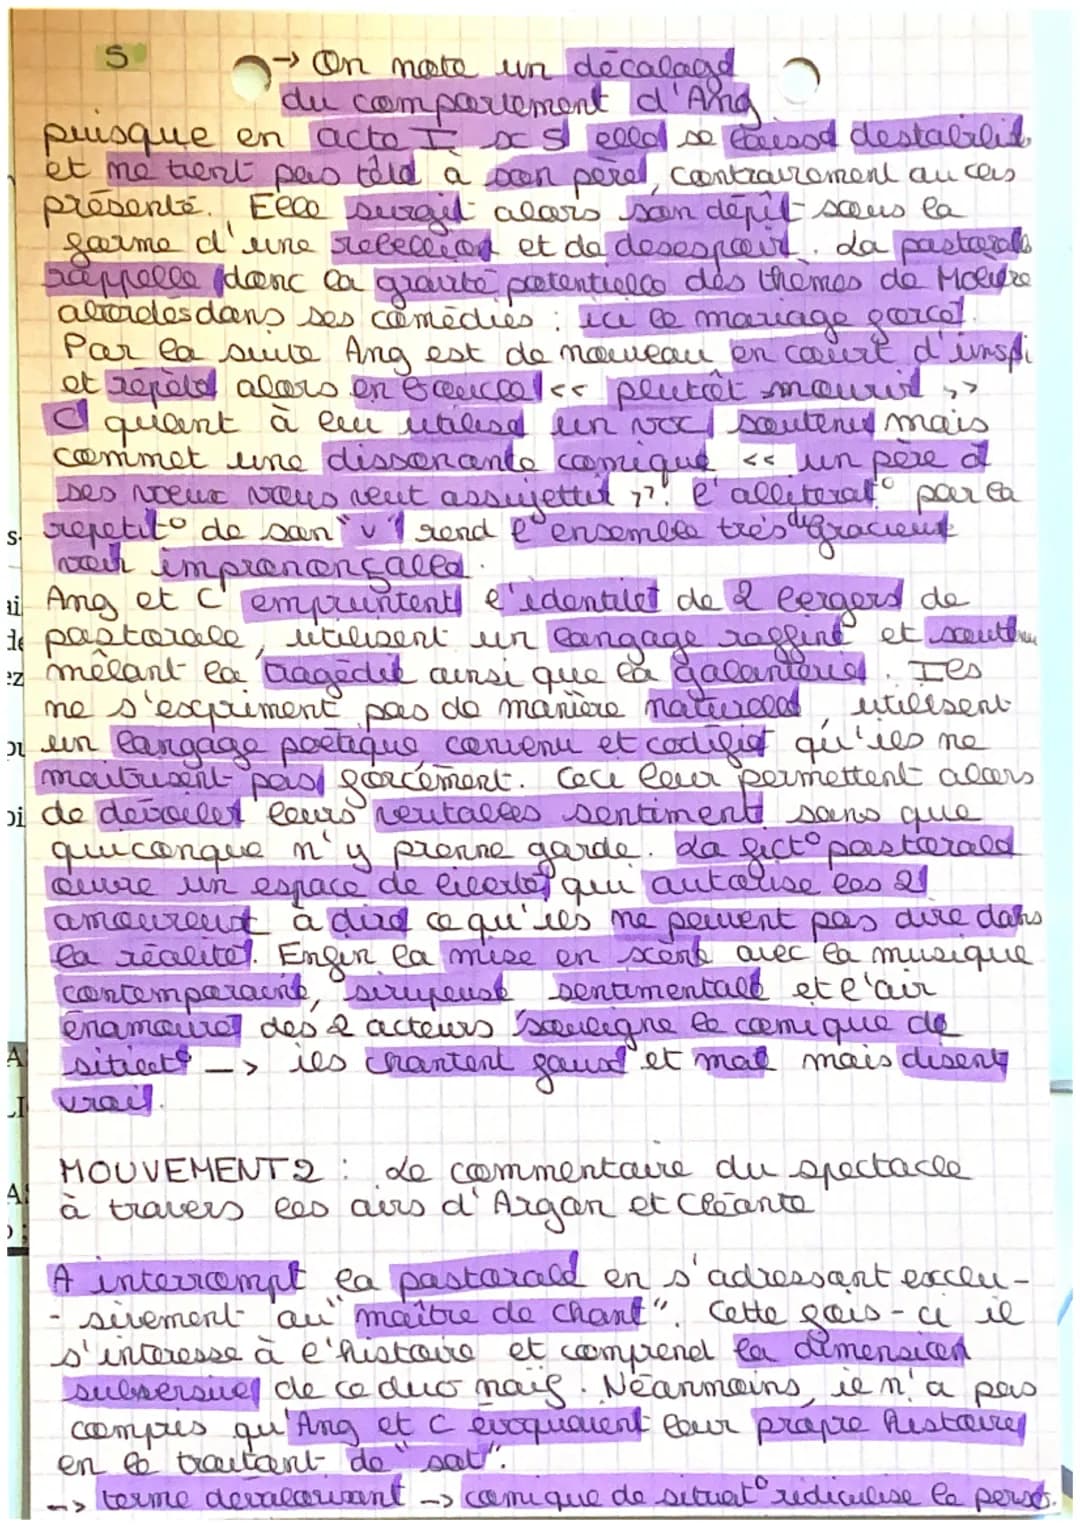 5
→ On note un décalage
du comportement d'Ang
puisque en acte I sc 5 elle se laisse destabilis
et ne tient pas tête à son père, contrairement au cas
présenté. Elle surgit alors son dépit sous la
forme d'une rebellion et de desespoir. La pastorale
rappelle donc la gravité potentielle des thèmes de Molière
abordes dans ses comédies : ici le mariage forcé.
Par la suite Ang est de nouveau en court d'inspi
et répète alors en boucle << plutôt mourir >>
C quant à lui utilise un voc soutenu mais
commet une dissonante comique << un père à
ses voeux vous veut assujettir >>. l'alliterat° par la
repetit° de son "v" rend l'ensemble très disgracieux
voir imprononçable.
Ang et C empruntent l'identité de 2 bergers de
pastorale, utilisent un langage raffiné et soutenu
mêlant la tragédie ainsi que la galanterie. Ils
ne s'expriment pas de manière naturelle, utilisent
un langage poétique convenu et codifié qu'ils ne
maitrisent pas forcément. Ceci leur permettent alors
de dévoiler leurs veritables sentiment sans que
quiconque n'y prenne garde. La fict° pastorale
ouvre un espace de liberté qui autorise les 2
amoureux à dire ce qu'ils ne peuvent pas dire dans
la réalité. Enfin la mise en scène avec la musique
contemporaine, sirupeuse sentimentale et l'air
énamouré des 2 acteurs souligne le comique de
situat° --> ils chantent faux et mal mais disent
vrai.
MOUVEMENT 2 : Le commentaire du spectacle
à travers les airs d'Argan et Cléante
A interrompt la pastorale en s'adressant exclu-
-sivement au "maître de chant". Cette fois-ci il
s'interesse à l'histoire et comprend la dimension
subversive de ce duo naïf. Néanmoins, il n'a pas
compris qu'Ang et C évoquaient leur propre histoire
en le traitant de "sot".
--> terme dévalorisant --> comique de situat° ridiculise le perso.